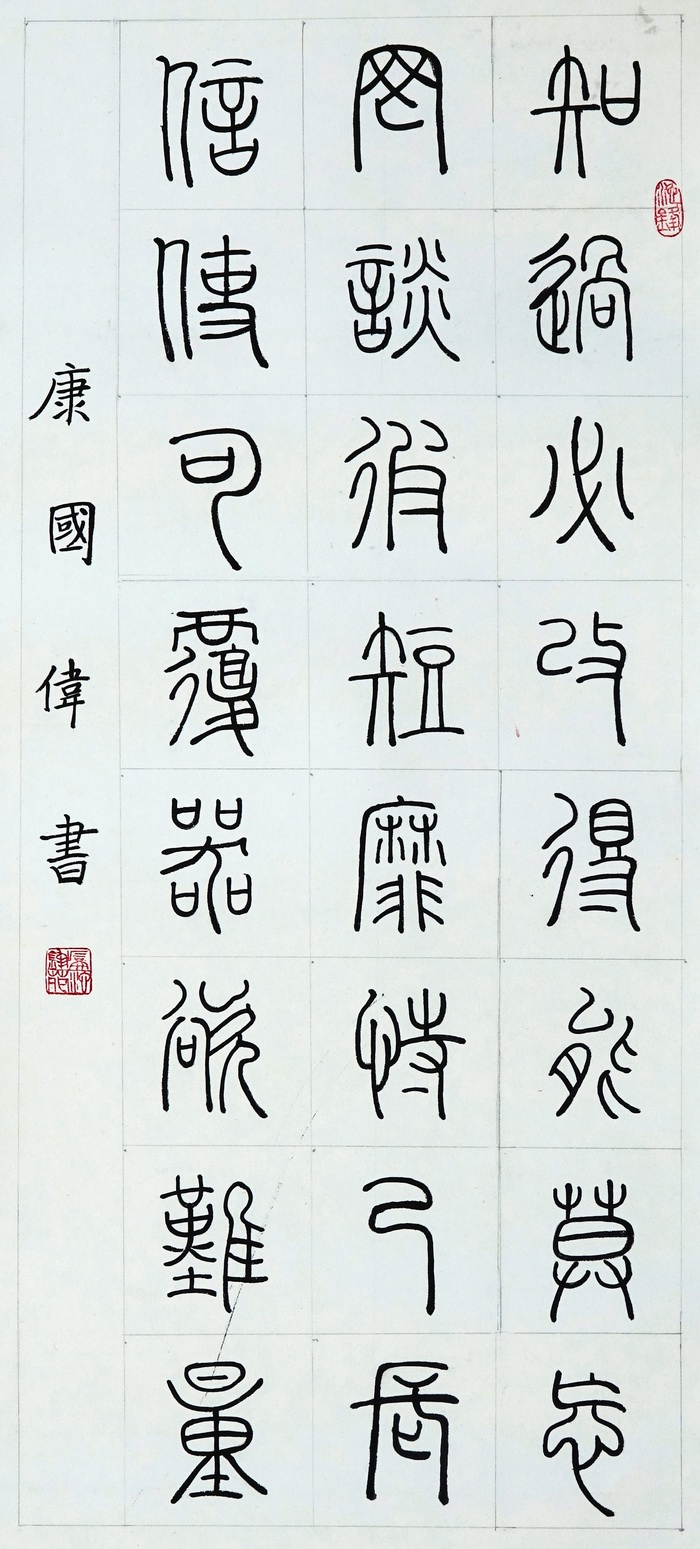 知過必改得能莫忘
罔談彼短靡恃己長
信使可覆器欲難量
康國偉書